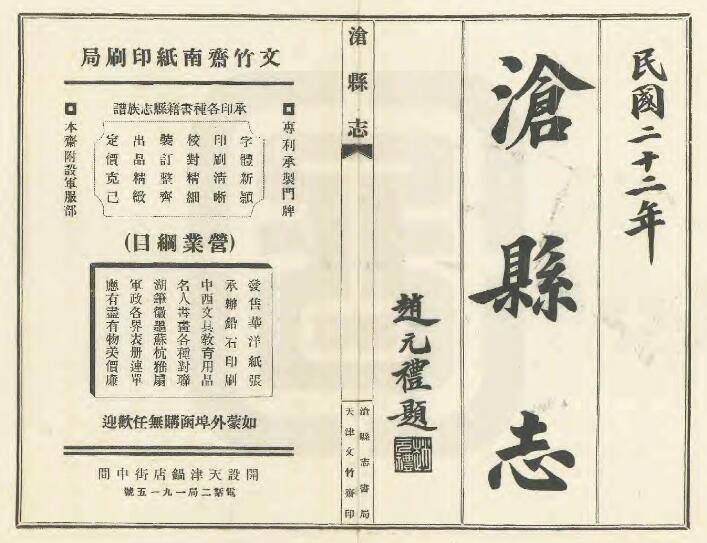 民國二十二年
滄縣志
趙元禮題
滄縣志
滄縣志書局
天津文竹齋印
文竹齋南紙印刷局
承印各種書籍縣志族譜
專利承製門牌
字體新穎
印刷清晰
校對精細
裝訂整齊
出品精緻
定價克己
本齋附設軍服部
(營業綱目)
發售華洋紙張
承辦鉛石印刷
中西文具教育用品
名人書畫各種對聯
湖筆徽墨蘇杭雅扇
軍政各界表册連單
應有盡有物美價廉
如蒙外埠函購無任歡迎
開設天津鍋店街中間
電話二局一九一五號